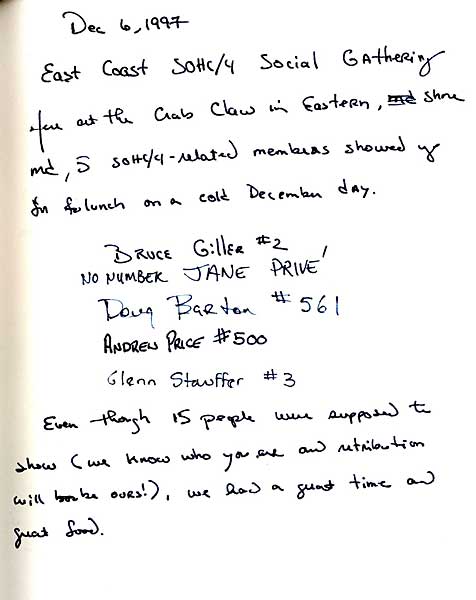 Dec 6, 1997
East Coast SOHC/4 Social Gathering
Here at the Crab Claw in Eastern, md shore
md, 5 SOHC/4-related members showed up
for for lunch on a cold December day.
Bruce Giller #2
NO NUMBER JANE PRIVE'
Doug Barton #561
ANDREW PRICE #500
Glenn Stauffer #3
Even though 15 people were supposed to
show (we know who you are and retribution
will be be ours!), we had a great time and
great food.